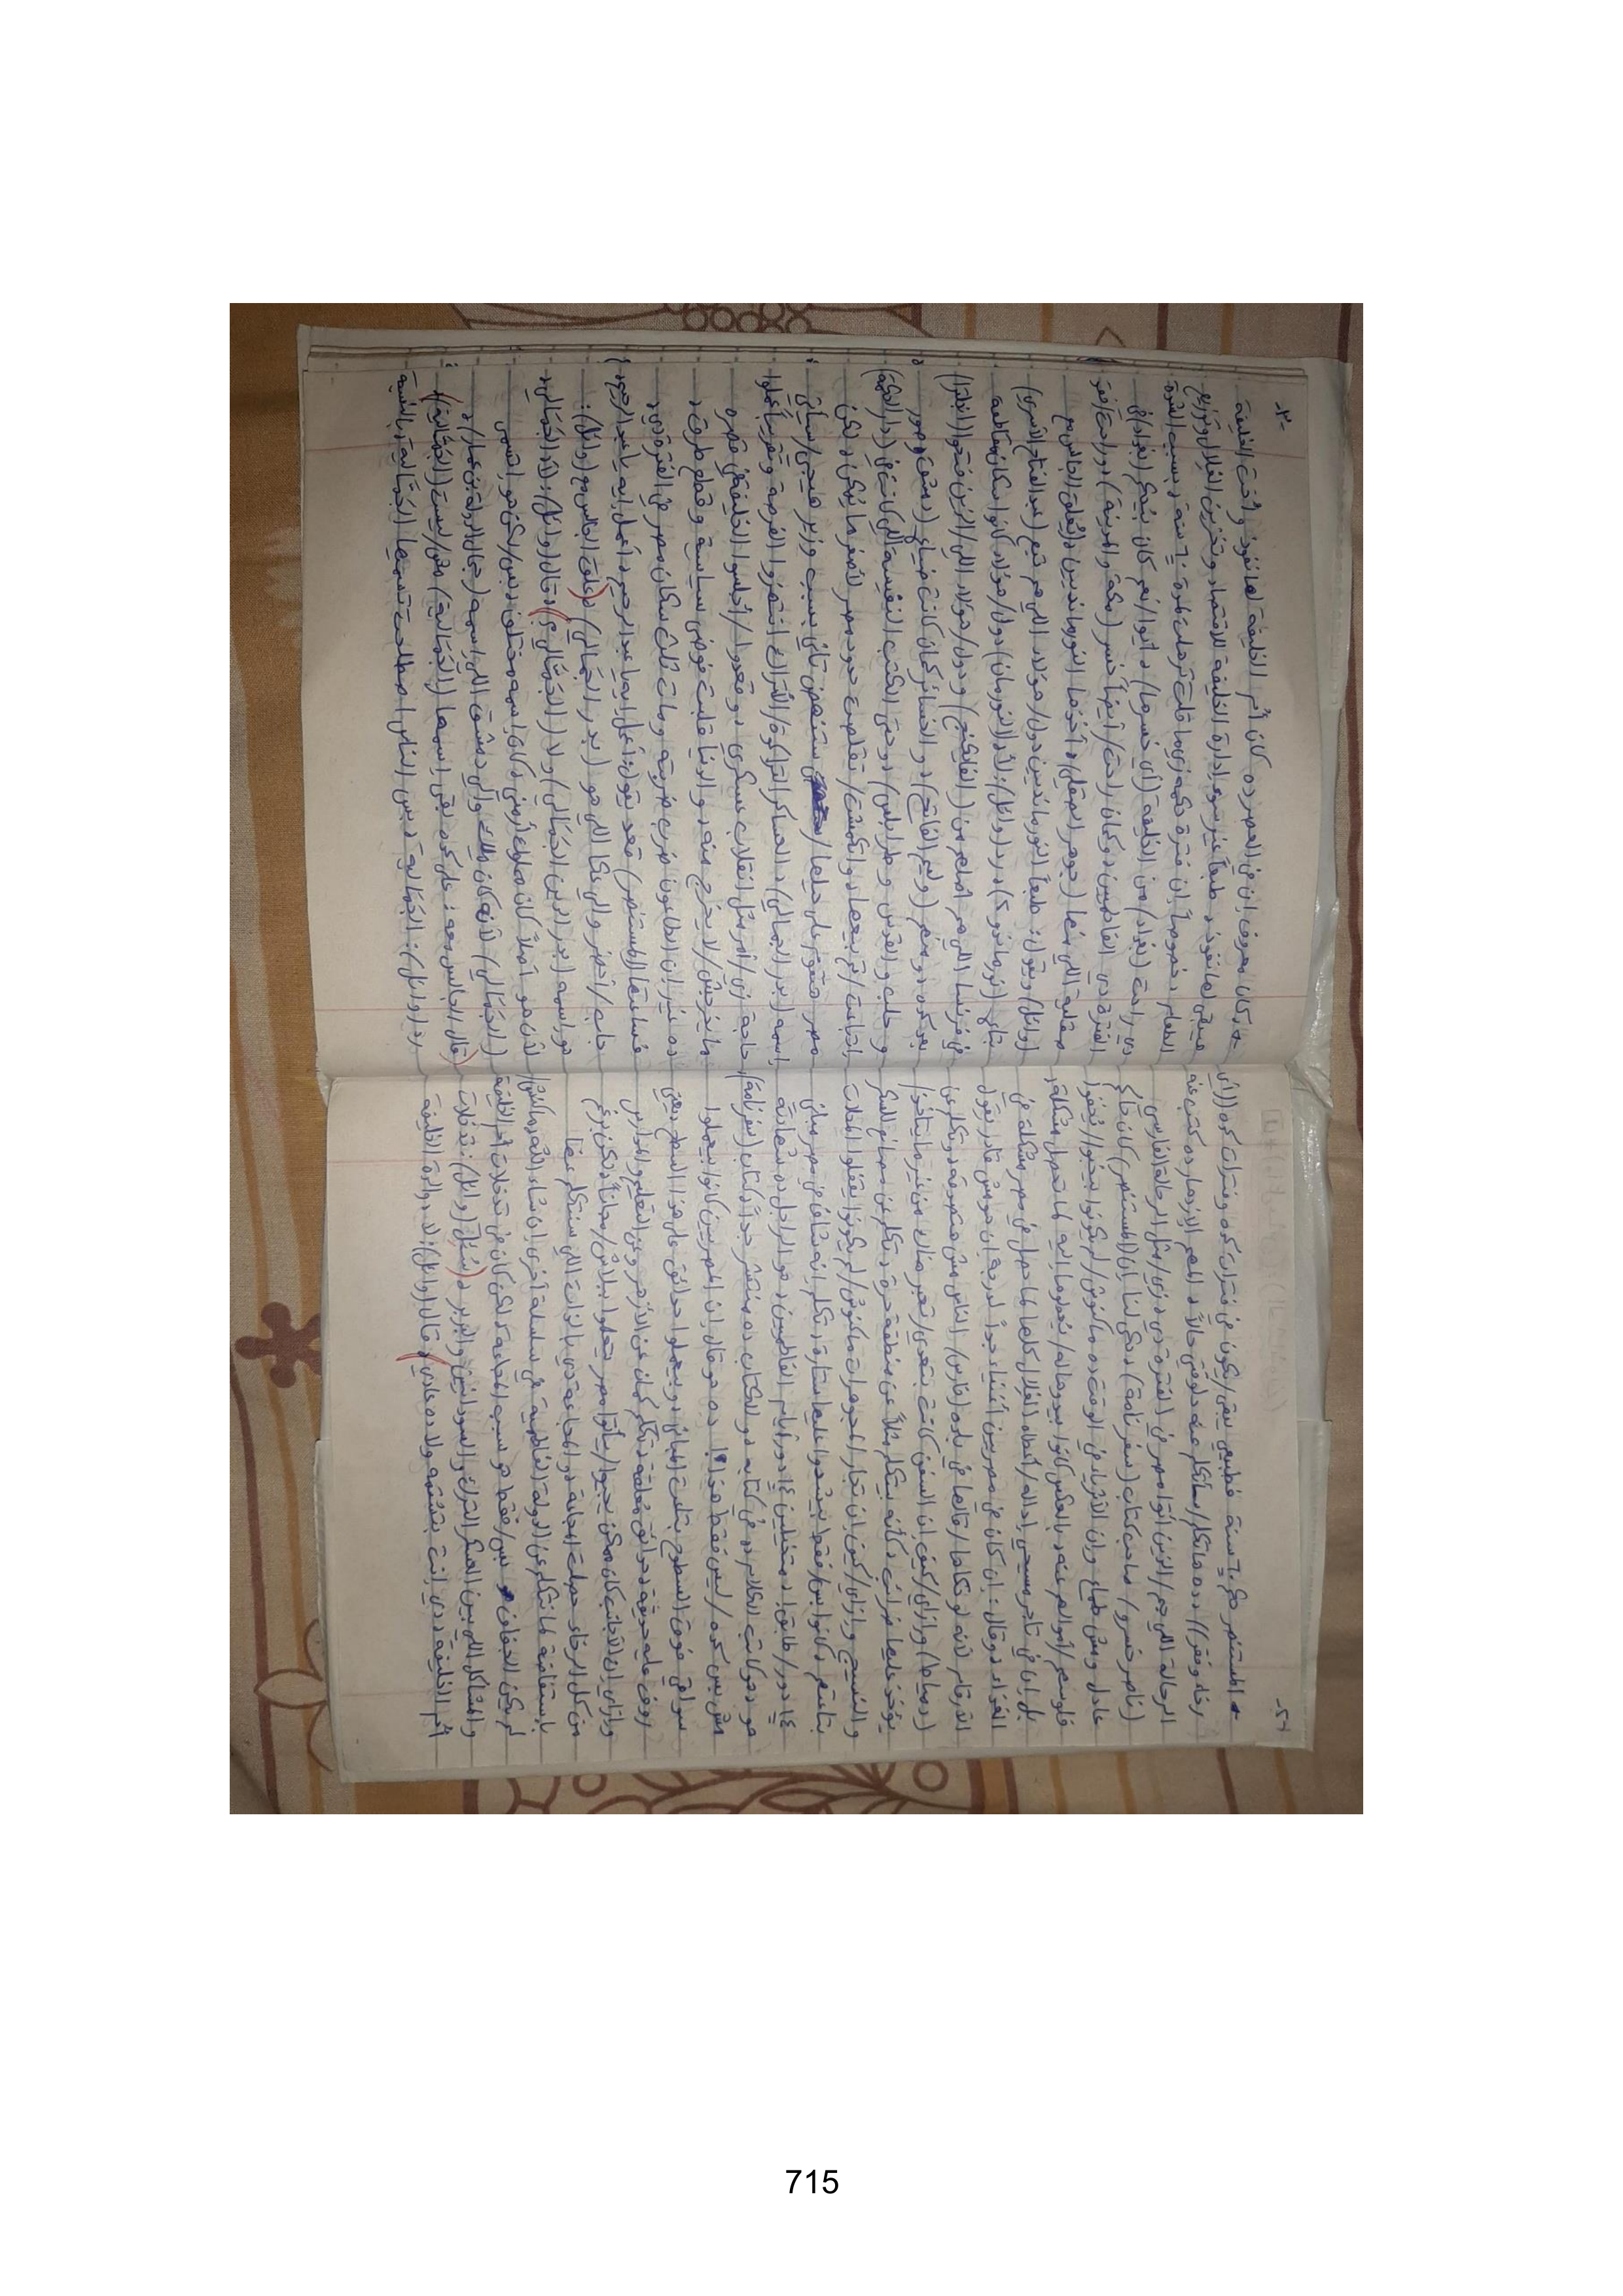 -٢٤
* المستنصر حكم ٦٠ سنة فطبيعي يبقى/يكون في فترات كده وفترات كده ((أي
رخاء وفقر)) ده هانتكلم/سأتكلم عنه دلوقتي حالاً، المهم الازدهار ده كتب عنه
الرحالة اللي جم/الذين أتوا مصر في الفترة دي، زي/مثل الرحالة الفارسي
(ناصر خسرو/صاحب كتاب (سفرنامة)، حكى لنا إن (المستنصر) كان حاكم
عادل ومش طماع وإن الأثرياء في الوقت ده ماكنوش/لم يكونوا بيخبوا/يُخفوا
فلوسهم/أموالهم عنه، بالعكس كانوا بيدوهاله/يعطوها إليه لما تحصل مشكلة،
بل إن في تاجر مسيحي إداله/أعطاه الغلال كلها لما حصل في مصر مشكلة في
الغذاء، وقال: إن كان في مصريين أغنياء جداً لدرجة إن هو مش قادر يقول
الأرقام لأنه لو حكاها/قالها في بلده (فارس)/الناس مش هتصدقه، وتكلم عن
(دمياط) وازاي/كيف إن السفن كانت بتعدي/تعبر هناك من غير ما يتأخذ/
يؤخذ عليها ضرائب، كأنه بيتكلم مثلاً عن منطقة حرة، تكلم عن مصانع للسكر
والنسيج وازاي/كيف إن تجار المجوهرات ماكنوش/لم يكونوا يقفلوا المحلات
بتاعتهم، كانوا بس/فقط بيشدوا عليها ستارة، تكلم إنه شاف في مصر مباني
١٤ دور/طابق!، متخيلين ١٤ دور أيام الفاطميين، هو الراجل ده شهادته
هو، هو كاتب الكلام ده في كتابه، والكتاب ده منتشر جداً، كتاب (سفرنامة)،
مش بس كده/ليس فقط هذا!! ده هو قال إن المصريين كانوا بيعملوا
سواقي فوق السطوح بتاعت المباني، ويعملوا حدائق على هذا السطح، يعني
روف عليه حديقة، حدائق معلقة، تكلم كمان عن الأزهر وعن التعليم والمدارس
وازاي إن الأجانب كان ممكن ييجوا/يأتوا مصر يتعلموا ببلاش/مجاناً، لكن برغم
من كل الرخاء حصلت المجاعة، والمجاعة دي بالذات اللي سنتكلم عنها
باستفاضة لما نتكلم عن الدولة الفاطمية في سلسلة أخرى إن شاء الله، ماكانش/
لم يكن الجفاف بس/فقط هو سبب المجاعة، لكن كان في تدخلات أم الخليفة
والمشاكل اللي بين العسكر الترك والسودانيين والبربر، (سُئل (وائل): تدخلات
أم الخليفة، دي إنت بتشتمه ولا ده عادي، فقال (وائل): لا، والدة الخليفة
-٣
كان معروف إن في العصر ده كان أم الخليفة لها نفوذ وأخت الخليفة
هيبقى لها نفوذ، طبعاً غير سوء إدارة الخليفة للاقتصاد وتخزين الغلال وتوزيع
الطعام، خصوصاً إن فترة حكمه زي ما قلت لكم طويلة ٦٠ سنة، بسبب الشدة
دي راحت (بغداد) من الخليفة (أي خسرها)، أيوا/نعم كان بيحكم (بغداد) في
الفترة دي الفاطميين، وكمان راحت/أيضاً خسر (مكة والمدينة)، وراحت/فقد
صقلية اللي منها (جوهر الصقلي)، أخذها النورمانديين،
(وائل) ويقول: طبعاً النورمانديين دول/هؤلاء اللي هم تبع (عبد الفتاح الأسري)
بتاع (نورماندي ٢)، رد (وائل): لأ، لأ (النورمان) دول/هؤلاء كانوا سكان مقاطعة
في فرنسا اللي هم أصلهم من (الفايكنج)، ودول/هؤلاء اللي/الذين فتحوا (إنجلترا)
بعد كده ومنهم (وليم الفاتح)، والخسائر كمان كانت ضياع (دمشق وصور
وحلب والقدس وطرابلس)، وحتى الكتب النفيسة اللي كانت في (دار الحكمة)
اتباعت/تم بيعها، وانكمشت/تقلصت حدود مصر لأصغر ما يمكن، لكن
مصر هتقوم على حيلها/ستنهض تاني بسبب وزير هييجي/سيأتي
اسمه (بدر الجمالي)، العساكر التراكوة/الأتراك انتهزوا الفرصة وتقريباً عملوا
حاجة زي/أمر مثل انقلاب عسكري، وقعدوا/أجلسوا الخليفة في قصره
ما يخرجش/لا يخرج منه، والدنيا قلبت فوضى سياسية وقطع طرق،
ده غير إن الطاعون ضرب ضربته ومات ثلث سكان مصر في الفترة دي،
فساعتها (المستنصر) قعد يقول: أعمل إيه يا عبد الرحيم، أعمل إيه يا عبد الرحيم؟
جاب/أحضر والي عكا اللي هو (بدر الجَمالي) (علق الجالس مع (وائل):
هو اسمه (بدر الدين الجَمَالي) ولا (الجَمَّالي)، قال (وائل): لأ، (الجَمَالي)،
لأن هو أصلاً كان مملوك أرمني، كان اسمه مختلف، بس/لكن هو اتسمى
(الجَمَالي) لأنه كان ملك والي دمشق اللي إسمه (جمال الدولة بن عمار)،
(قال الجالس معه: على كده يبقى إسمها (الجَمَالية) مش/ليست (الجَمَّالية)؟
رد (وائل): الجَمَالية، بس الناس اصطلحت تسميها الجَمَّالية، بالنسبة
715